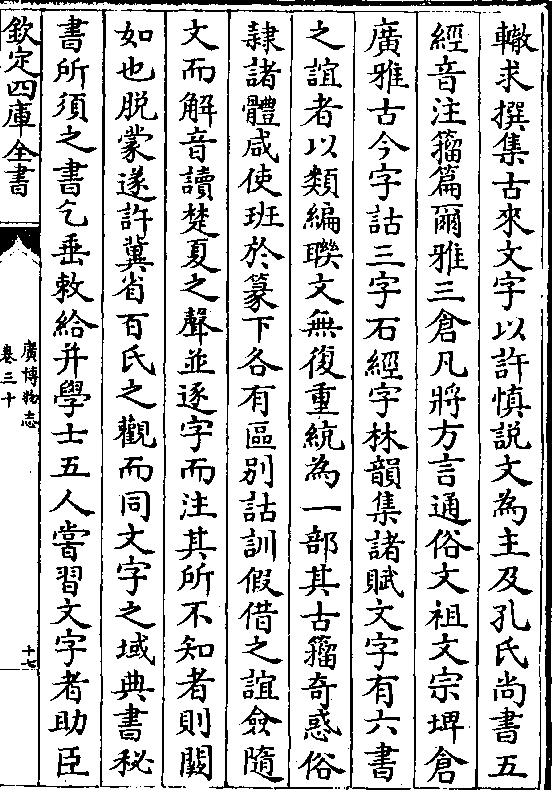 轍求撰集古來文字以許慎說文為主及孔氏尚書五
經音注籀篇爾雅三倉凡將方言通俗文祖文宗埤倉
廣雅古今字詁三字石經字林韻集諸賦文字有六書
之誼者以類編聨文無復重統為一部其古籀奇惑俗
隷諸體咸使班於篆下各有區别詁訓假借之誼僉隨
文而解音讀楚夏之聲並逐字而注其所不知者則闕
如也脱蒙遂許冀省百氏之觀而同文字之域典書秘
書所須之書乞垂敕給并學士五人嘗習文字者助臣
欽定四庫全書
廣博物志
卷三十
十七